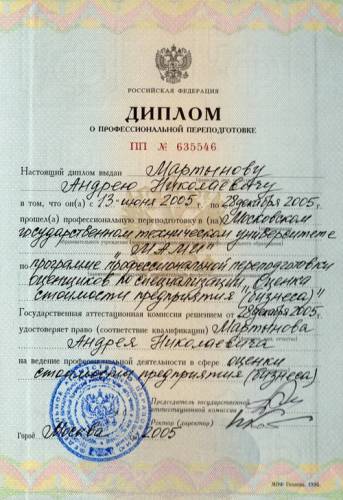 РОССИЙСКАЯ ФЕДЕРАЦИЯ
ДИПЛОМ
О ПРОФЕССИОНАЛЬНОЙ ПЕРЕПОДГОТОВКЕ
ПП № 635546
Настоящий диплом выдан Мартынову
Андрею Николаевичу
в том, что он(а) с 13 июня 2005 г. по 28 декабря 2005 г.
прошел(а) профессиональную переподготовку в (на) Московском
государственном техническом университете
"МАМИ"
по программе профессиональной переподготовки
оценщиков по специализации "Оценка
стоимости предприятия (бизнеса)"
Государственная аттестационная комиссия решением от 28 декабря 2005 г.
удостоверяет право (соответствие квалификации) Мартынова
Андрея Николаевича
на ведение профессиональной деятельности в сфере оценки
стоимости предприятия (бизнеса)
Председатель государственной
аттестационной комиссии
Ректор (директор)
Город Москва 2005